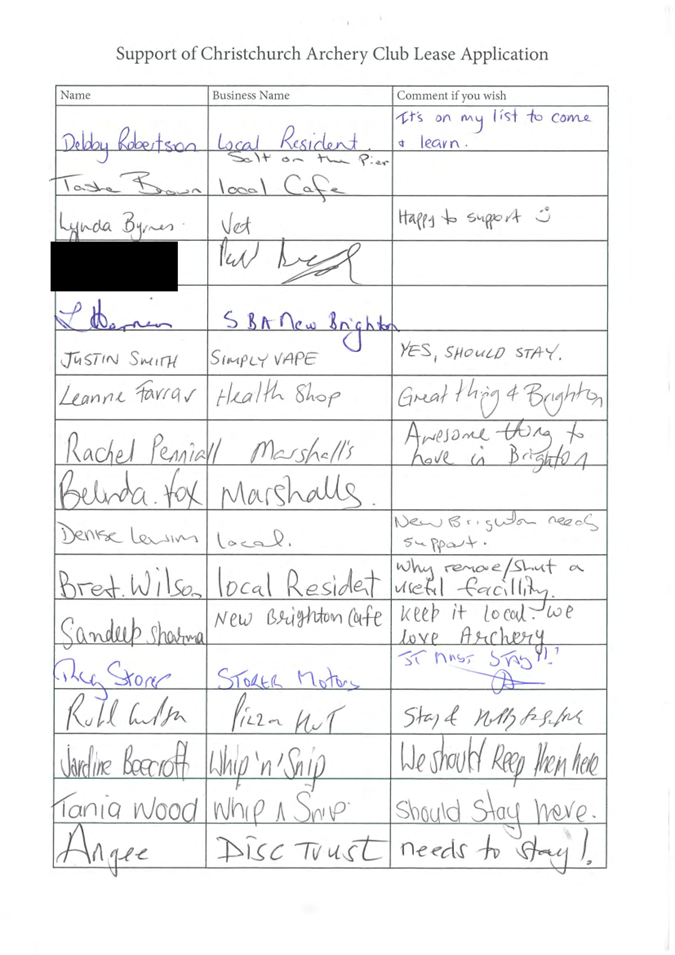 Support of Christchurch Archery Club Lease Application
Name Business Name Comment if you wish
Debby Robertson Local Resident. It's on my list to come
& learn.
Salt on the Pier
Brown local Cafe
Lynda Byrnes. Vet Happy to support
SBA New Brighton
JUSTIN SMITH SIMPLY VAPE YES, SHOULD STAY.
Leanne Farrar Health Shop Great thing 4 Brighton
Rachel Penniall Marshall's Awesome thing to
have in Brighton
Belinda. Fox Marshalls.
Denise local. New Brighton needs
support.
Bret. Wilson local Resident Why remove/shut a
useful facillity.
Sandeep Sharma New Brighton Cafe keep it local. we
love Archery
Storer STORER Motors IT MUST STAY!!
Pizza HuT Stay
Jardine Beecroft Whip 'n' Snip We should keep them here
Tania Wood Whip n Snip. Should Stay here.
Angee DISC TRUST needs to stay!.